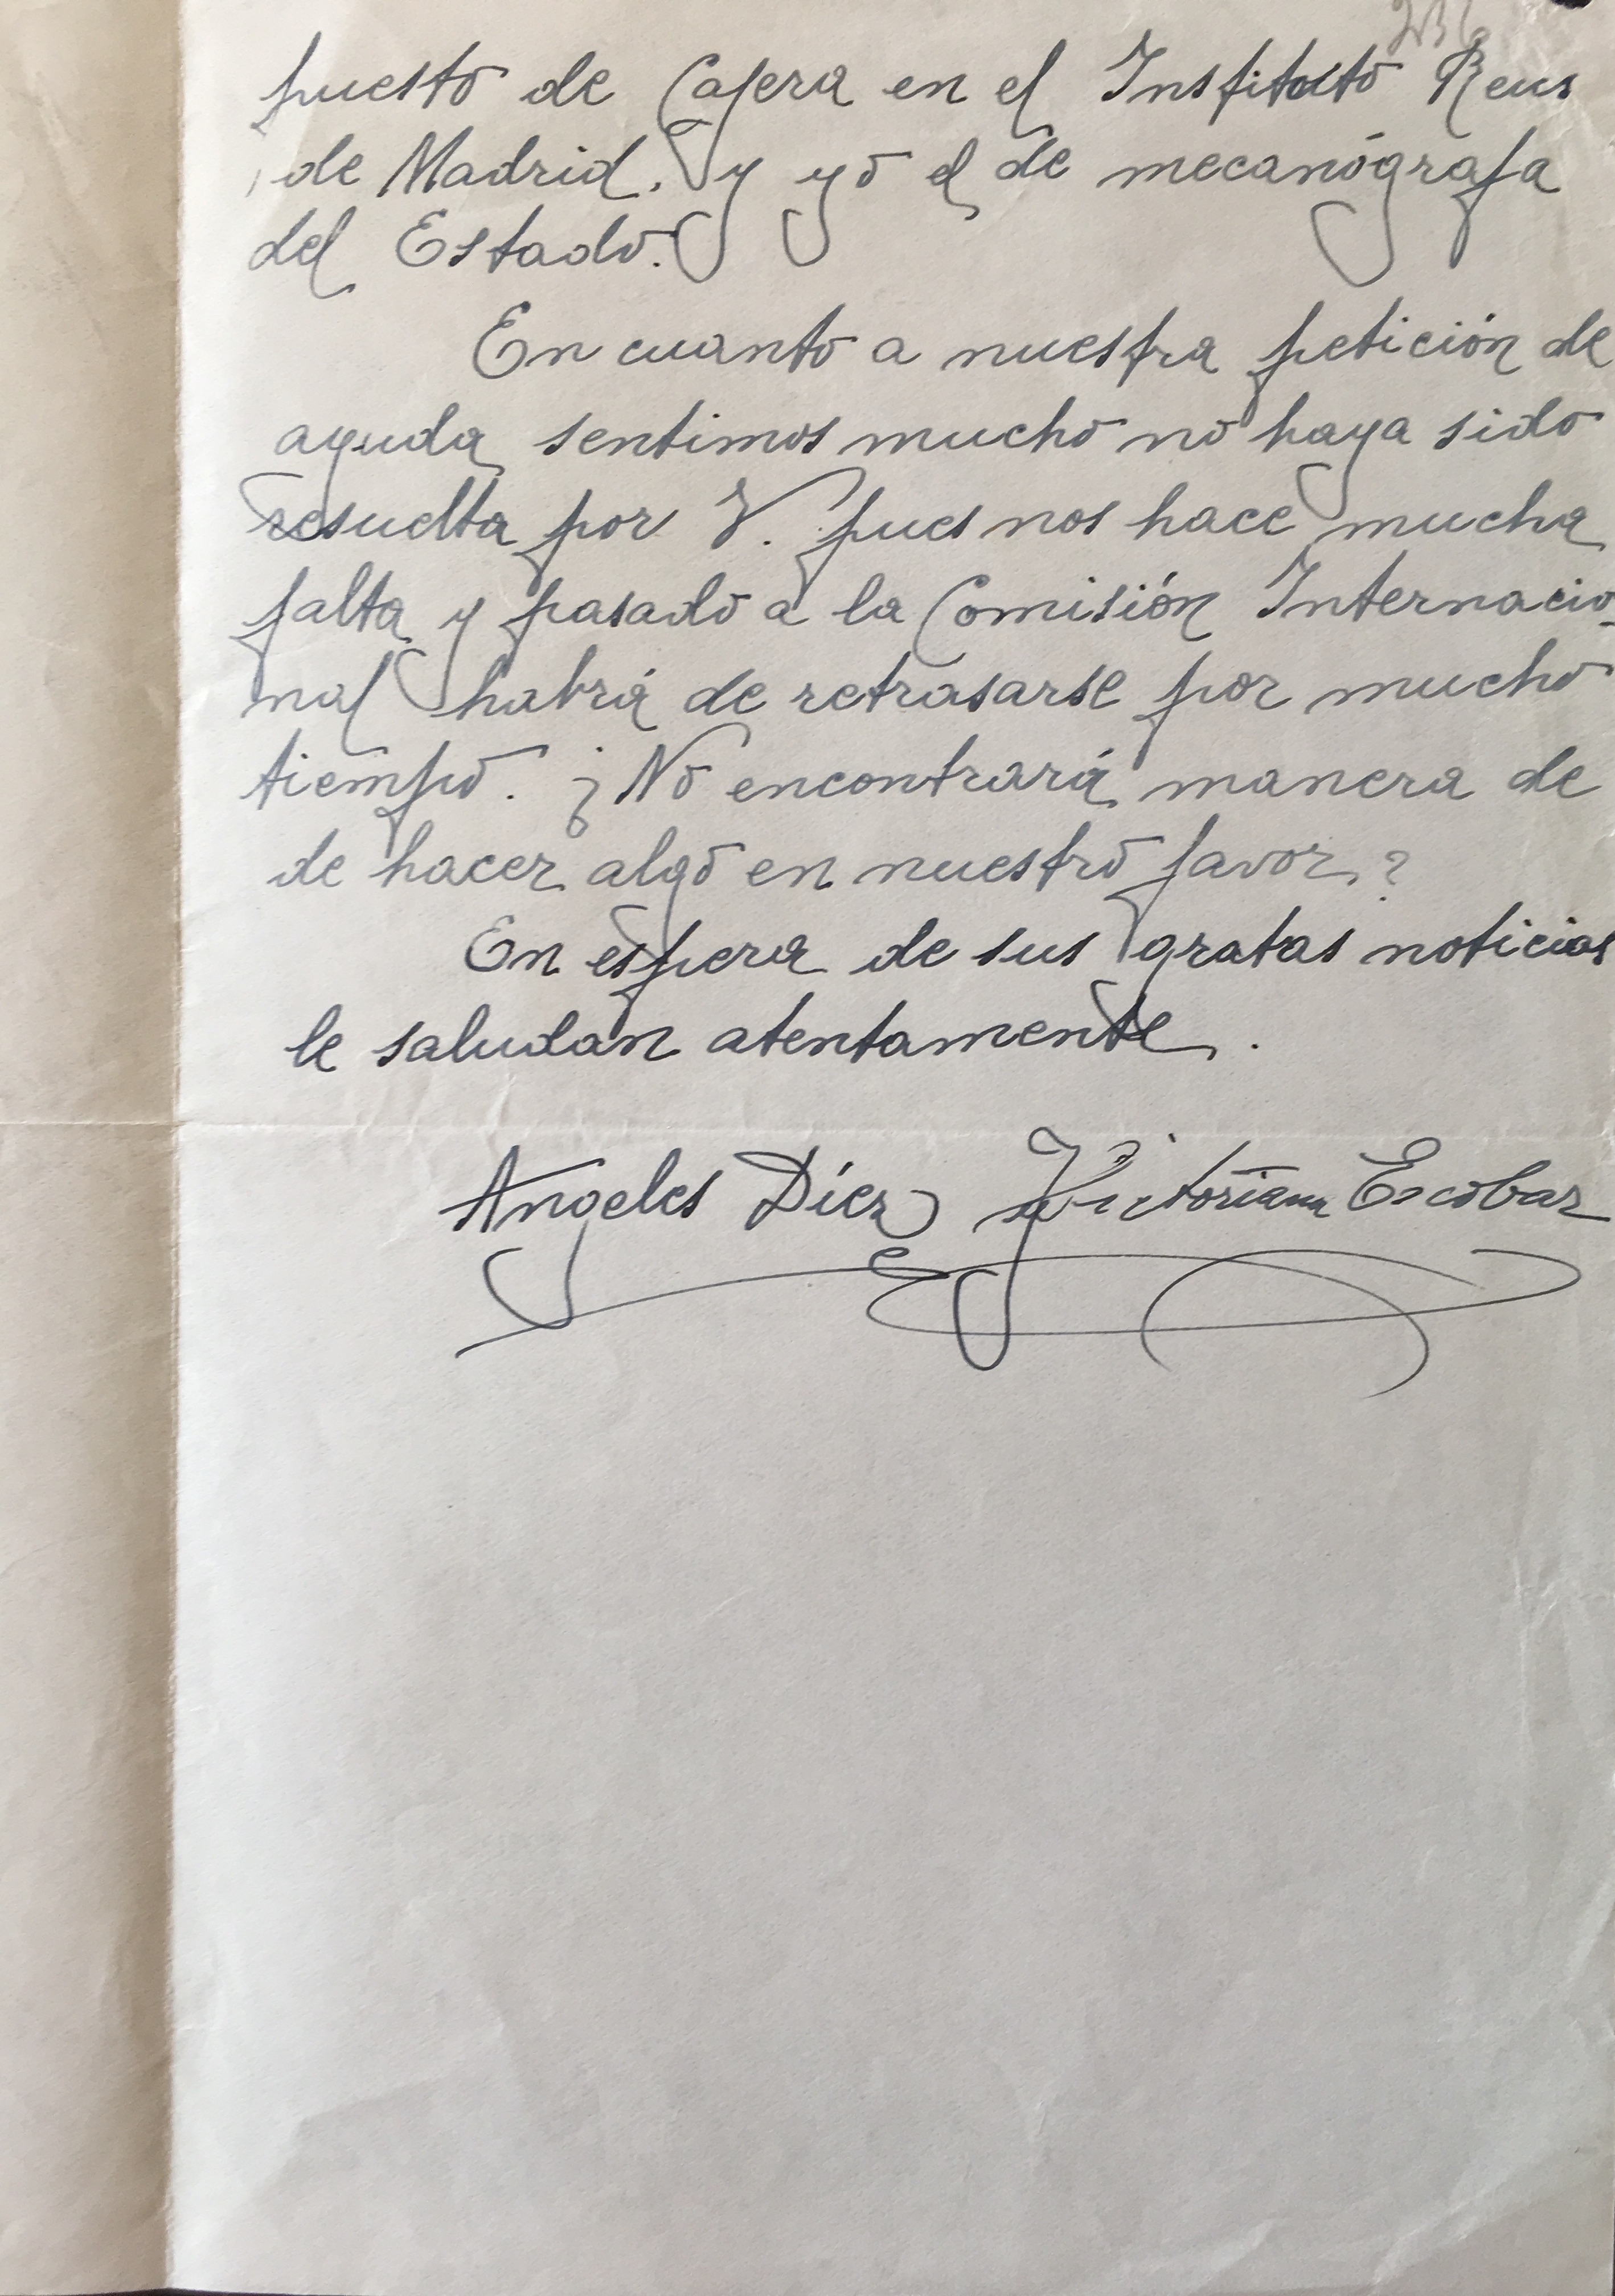 puesto de Cajera en el Instituto Reus
de Madrid. y yo el de mecanógrafa
del Estado.
En cuanto a nuestra petición de
ayuda sentimos mucho no haya sido
resuelta por V. pues nos hace mucha
falta y pasado a la Comisión Internacio-
nal habrá de retrasarse por mucho
tiempo. ¿No encontrará manera de
de hacer algo en nuestro favor?
En espera de sus gratas noticias
le saludan atentamente.
Angeles Díez Victoriana Escobar